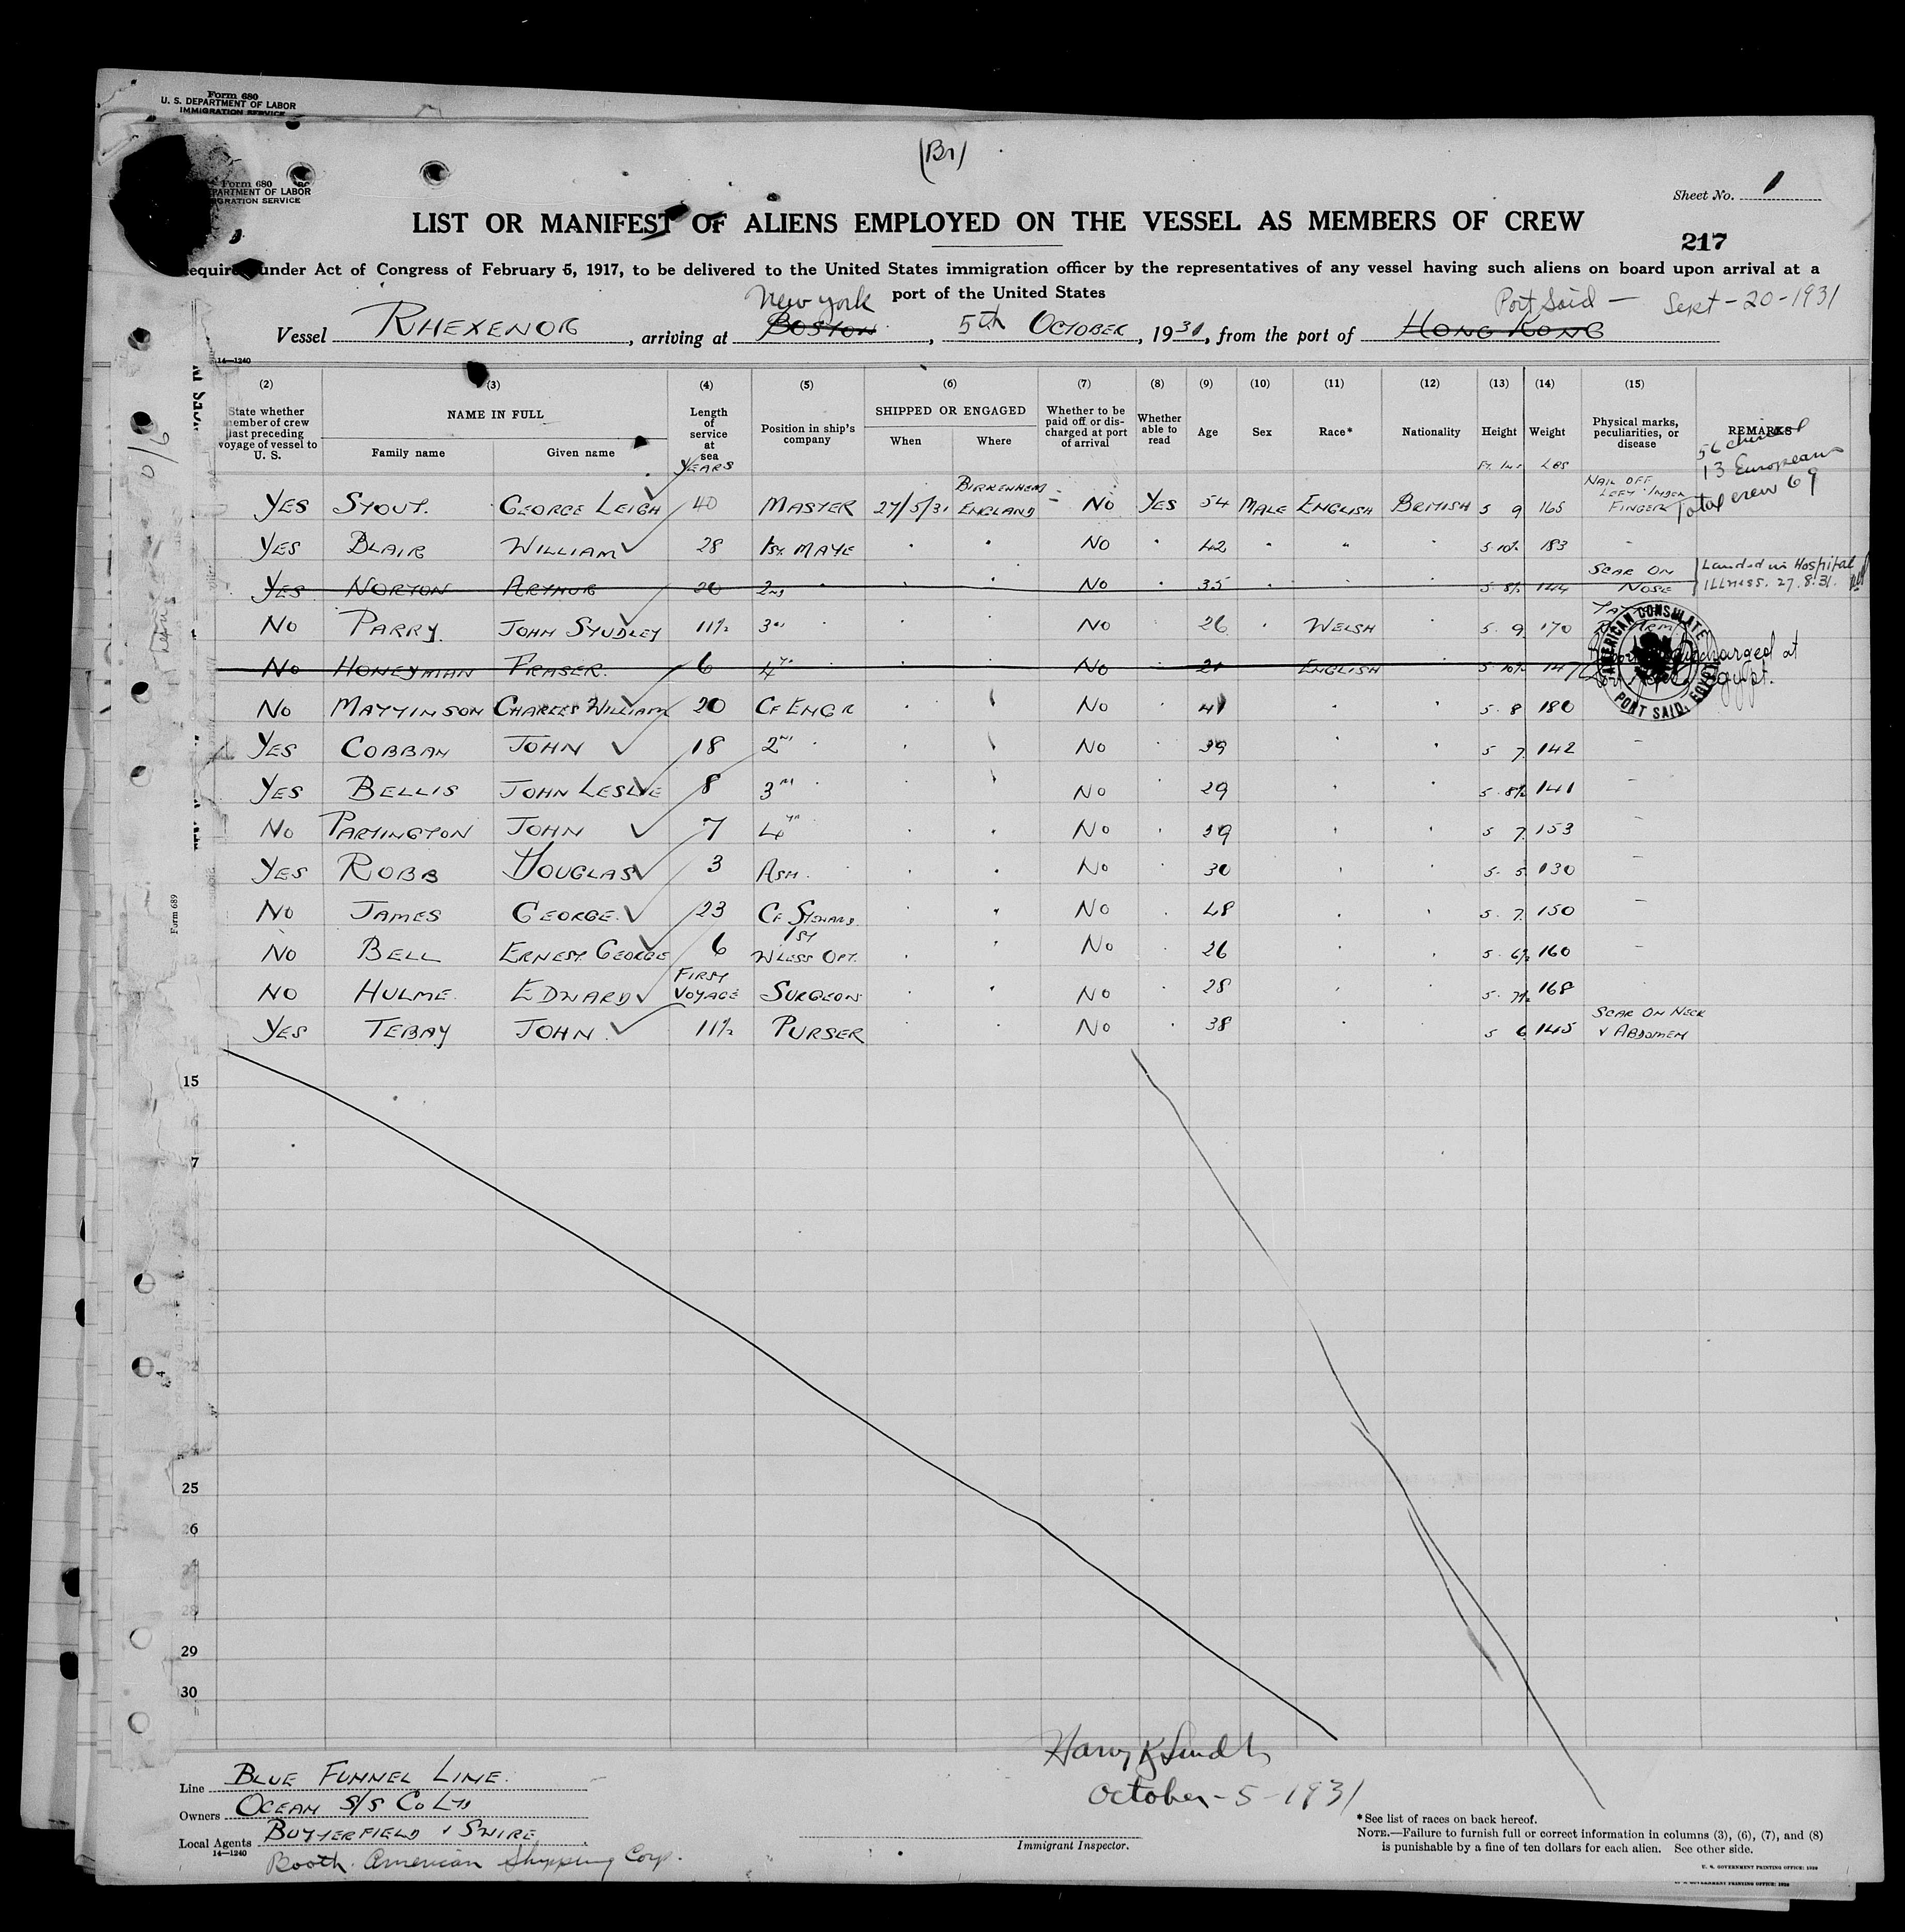 Form 680
U. S. DEPARTMENT OF LABOR
IMMIGRATION SERVICE
(Br)
Form 680
PARTMENT OF LABOR
GRATION SERVICE
Sheet No. 1
LIST OR MANIFEST OF ALIENS EMPLOYED ON THE VESSEL AS MEMBERS OF CREW
217
under Act of Congress of February 5, 1917, to be delivered to the United States immigration officer by the representatives of any vessel having such aliens on board upon arrival at a
port of the United States
New York Port Said — Sept-20-1931
Vessel RHEXENOR, arriving at BOSTON, 5th OCTOBER, 1931, from the port of HONG KONG
14—1240
(2) (3) (4) (5) (6) (7) (8) (9) (10) (11) (12) (13) (14) (15)
State whether member of crew last preceding voyage of vessel to U. S. NAME IN FULL Family name Given name Length of service at sea YEARS Position in ship's company SHIPPED OR ENGAGED When Where Whether to be paid off or discharged at port of arrival Whether able to read Age Sex Race* Nationality Height Ft. Ins Weight Lbs Physical marks, peculiarities, or disease REMARKS
56 Chinese
13 Europeans
Total crew 69
YES STOUT. GEORGE LEIGH 40 MASTER 27/5/31 BIRKENHEAD ENGLAND NO YES 54 MALE ENGLISH BRITISH 5 9 165 NAIL OFF LEFT INDEX FINGER
YES BLAIR WILLIAM 28 1ST MATE " " NO " 42 " " " 5 10½ 183 -
YES NORTON ARTHUR 20 2nd " " " NO " 35 " " " 5 8½ 144 SCAR ON NOSE Landed in Hospital Illness. 27.8.31.
NO PARRY. JOHN STUDLEY 11½ 3rd " " " NO " 26 " WELSH " 5 9 170
NO HONEYMAN FRASER. 6 4TH NO 21 ENGLISH 5 10½ 147 discharged at
AMERICAN CONSULATE
PORT SAID, EGYPT
NO MATTINSON CHARLES WILLIAM 20 CF ENGR " " NO " 41 " " 5 8 180
YES COBBAN JOHN 18 2ND " " " NO " 39 " " 5 7 142 -
YES BELLIS JOHN LESLIE 8 3RD " " " NO " 29 " " 5 8½ 141 -
NO PARTINGTON JOHN 7 4TH " " NO " 29 " " 5 7 153 -
YES ROBB DOUGLAS 3 ASST. " " NO 30 " " 5 5 130 -
NO JAMES GEORGE. 23 CF STEWARD. " " NO " 48 " " 5 7 150 -
NO BELL ERNEST GEORGE 6 1ST WLESS OPT. " " NO " 26 " " 5 6½ 160 -
NO HULME. EDWARD FIRST VOYAGE SURGEON " " NO " 28 " " 5 7½ 168
YES TEBAY JOHN. 11½ PURSER " " NO " 38 " " 5 6 145 SCAR ON NECK & ABDOMEN
15
16
7
25
26
28
29
30
Form 689
Harry K Lindt
October-5-1931
Line BLUE FUNNEL LINE.
Owners OCEAN S/S CO LTD
Local Agents BUTTERFIELD & SWIRE
14—1240
Booth American Shipping Corp.
Immigrant Inspector.
*See list of races on back hereof.
NOTE.—Failure to furnish full or correct information in columns (3), (6), (7), and (8)
is punishable by a fine of ten dollars for each alien. See other side.
U. S. GOVERNMENT PRINTING OFFICE: 1928